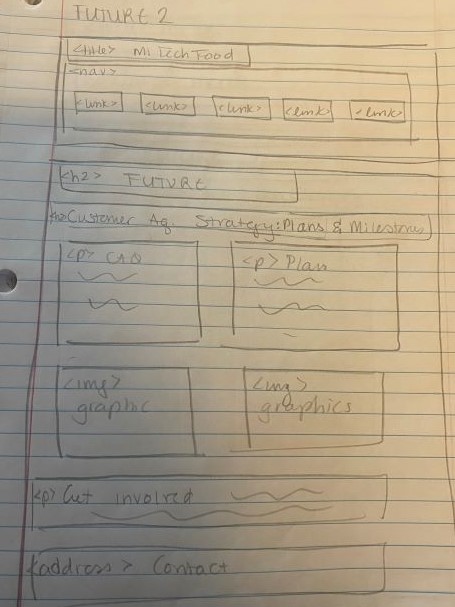 FUTURE 2
<title> Mi Tech Food
<nav>
<link> <link> <link> <link> <link>
<h2> FUTURE
<h2> Customer Aq. Strategy: Plans & Milestones
<p> CAQ <p> Plan
<img> <img>
graphic graphics
<p> Get involved
<address> Contact